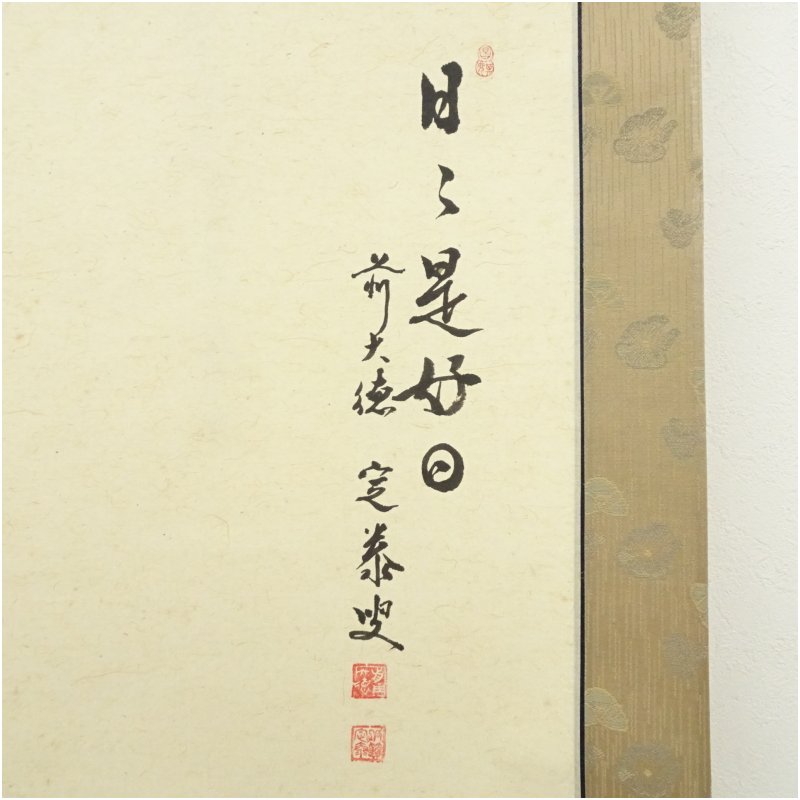 日々是好日
前大徳 定泰叟